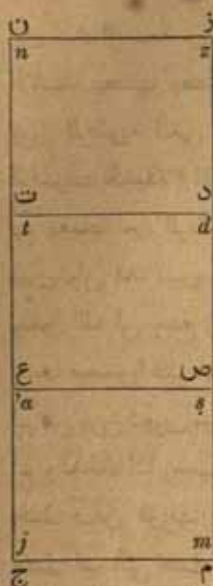 ن ز
n z
ت د
t d
ع ص
'a ṣ
j m
ج م